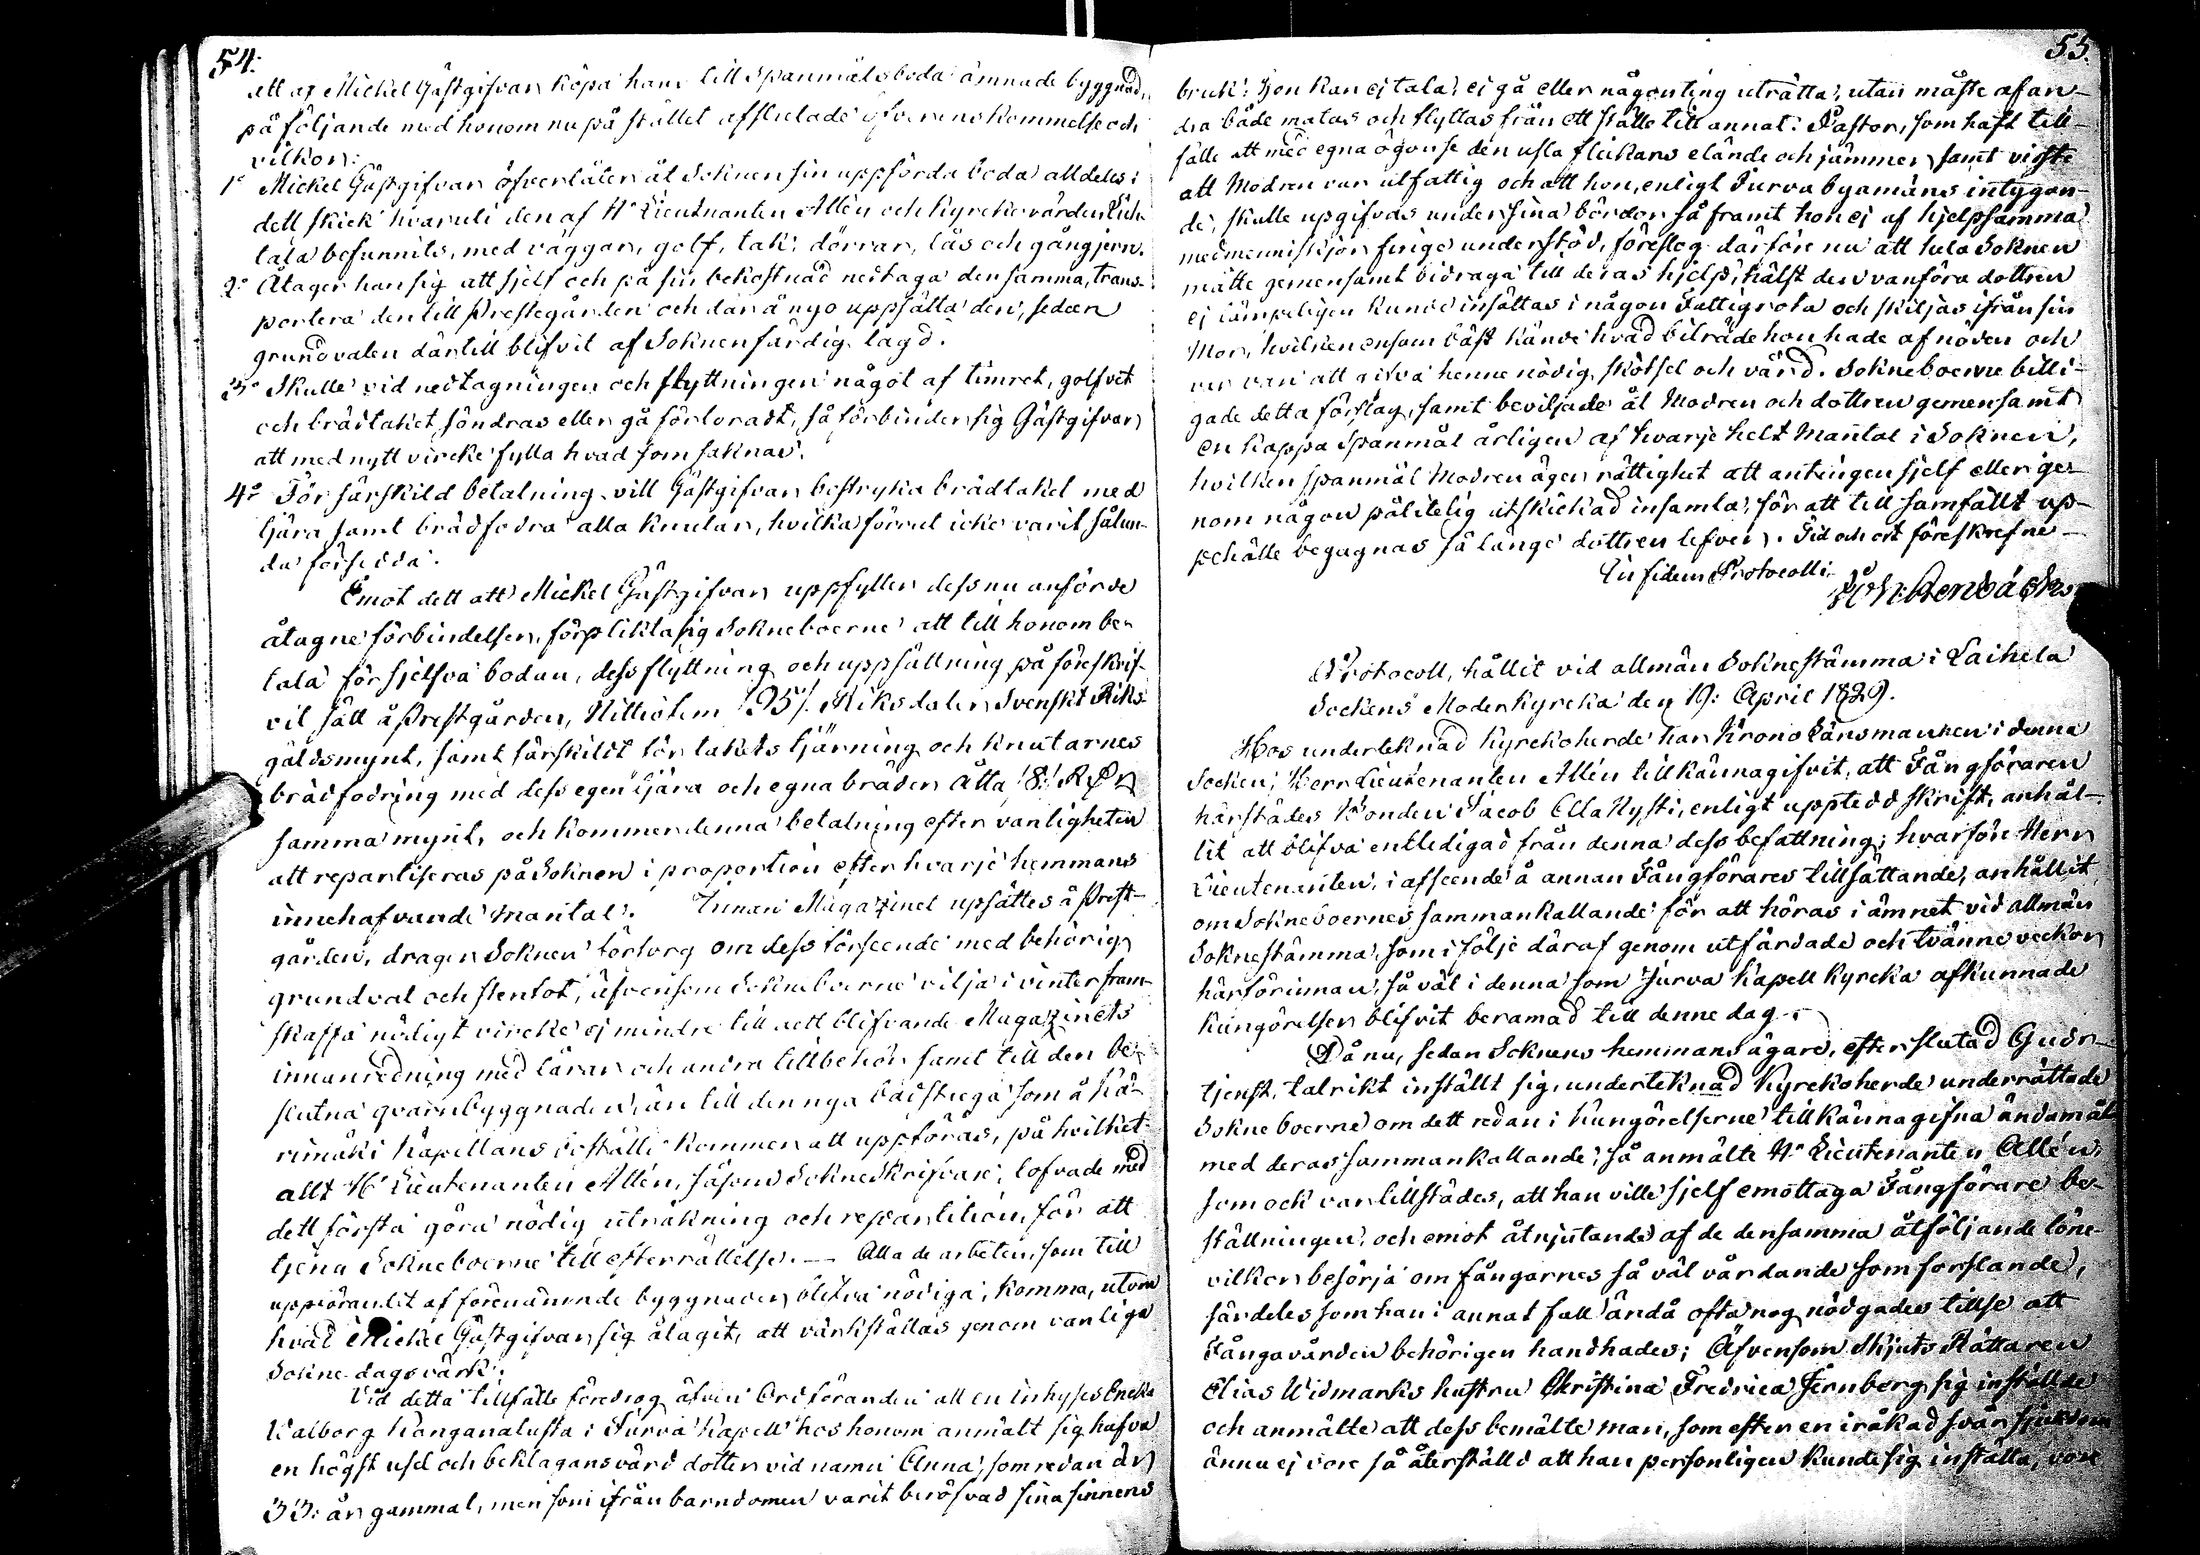 54.
att af Mickel Gästgifvars köpa hans till Spanmålsboda ämnade byggnad,
på följande med honom nu på stället afslutade öfverenskommelse och
vilkor:
1o Mickel Gästgifvars öfverlåter åt Soknen sin uppförda boda alldeles i
dett skick hvaruti den af Hr Lieutnanten Allén och Kyrkovärden
tala befunnits, med väggar, golf, tak, dörrar, lås och gångjern.
2o Åtager han sig att sjelf och på sin bekostnad nedtaga densamma, trans-
portera den till Prestegården och där å nyo uppsätta den, sedan
grundvalen därtill blifvit af Soknen färdig lagd.
3o Skulle vid nedtagningen och flyttningen något af timret, golfvet
och brädtaket söndras eller gå förloradt, så förbinder sig Gästgifvars
att med nytt vircke fylla hvad som saknas.
4o För särskild betalning vill Gästgifvars bestryka brädtaket med
tjära samt brädfodra alla knutar, hvilka förrut icke varit sålun-
da försedda.
Emot dett att Mickel Gästgifvars uppfyller dess nu anförde
åtagne förbindelser, förplikta sig Sokneboerne att till honom be-
tala för sjelfva bodan, dess flyttning och uppsättning på föreskrif-
vit sätt å Prestgården, Nittiofem /95/ Riksdaler Svenskt Riks-
gäldsmynt, samt särskildt för takets tjärning och knutarnes
brädfodring med dess egen tjära och egna bräder Åtta /8/ RDr
samma mynt, och kommer denna betalning efter vanligheten
att repartiseras på Soknen i proportion efter hvarje hemmans
innehafvande mantal. Innan Magazinet upsättes å Prest-
gården, drager Soknen försorg om dess förseende med behörig
grundval och stenfot, äfvensom Sokneboerne vilja i vinter fram-
skaffa nödigt vircke ej mindre till dett blifvande Magazinets
innanredning med lårar och andra tillbehör samt till den be-
slutna qvarnbyggnaden, än till den nya badstuga som å Kä-
rimäki Kapellans boställe kommer att uppföras, på hvilket
allt Hr Lieutenanten Allén, såsom Sokneskrifvare, lofvade med
dett första göra nödig uträkning och repartition, för att
tjena Sokneboerne till efterrättelse. — Alla de arbeten, som till
uppförandet af förenämnde byggnader blifva nödiga, komma, utom
hvad Mickel Gästgifvars sig åtagit, att värkställas genom vanliga
Sokne dagsvärk.
Vid detta tillfälle föredrog äfven Ordföranden att en Inhyses Enka
Valborg Kanganalusta i Jurva Kapell hos honom anmält sig hafva
en högst usel och beklagansvärd dotter vid namn Anna, som redan är
33: år gammal, men som ifrån barndomen varit beröfvad sina sinnens
55.
bruk. Hon kan ej tala, ej gå eller någonting uträtta, utan måste af an-
dra både matas och flyttas från ett ställe till annat. Pastor, som haft till-
fälle att med egna ögon se den usla flickans elände och jämmer samt viste
att Modren var utfattig och att hon, enligt Jurva byamäns intygan-
de, skulle upgifvas under sina bördor så framt hon ej af hjelpsamma
medmenniskjor finge understöd, föreslog därföre nu att hela Soknen
måtte gemensamt bidraga till deras hjelp, hälst den vanföra dottren
ej lämpeligen kunde insättas i någon Fattigrota och skiljas ifrån sin
Mor, hvilken ensam bäst kände hvad biträde hon hade af nöden och
var van att gifva henne nödig skötsel och vård. Sokneboerne billi-
gade detta förslag, samt beviljade åt Modren och dottren gemensamt
en kappa Spanmål årligen af hvarje helt Mantal i Soknen,
hvilken spanmål Modren äger rättighet att antingen sjelf eller ge-
nom någon pålitelig utskickad insamla, för att till samfällt up-
pehälle begagnas så länge dottren lefver. Tid och ort föreskrefne —
In fidem Protocolli
Protocoll, hållit vid allmän Soknestämma i Laihela
Sockens Moderkyrcka den 19: April 1829.
Hos underteknad Kyrckoherde har Krono Länsmannen i denna
Socken, Herr Lieutenanten Allén tillkännagifvit, att Fångföraren
härstädes Bonden Jacob Ella Kysti, enligt uppredd skrift, anhål-
lit att blifva entledigad från denna dess befattning; hvarför Herr
Lieutenanten, i afseende å annan Fångförares tillsättande, anhållit
om Sokneboernes sammankallande för att höras i ämnet vid allmän
Soknestämma, som i följe däraf genom utfärdade och tvänne veckor
härförinnan, så väl i denna som Jurva Kapell Kyrcka afkunnade
kungörelser blifvit beramad till denne dag.
Då nu, sedan Soknens hemmansägare, efter slutad Guds-
tjenst, talrikt inställt sig, underteknad Kyrckoherde underrättade
Sokneboerne om dett redan i kungörelserne tillkännagifna ändamål
med deras sammankallande, så anmälte Hr Lieutenanten Allén,
som ock var tillstädes, att han ville sjelf emottaga Fångförare be-
ställningen, och emot åtnjutande af de densamma åtföljande löne-
vilkor besörja om fångarnes så väl vårdande som forslande,
särdeles som han i annat fall ändå ofta nog nödgades tillse att
Fångavården behörigen handhades; Äfvensom Skjuts Rättaren
Elias Widmarks hustru Christina Fredrica Fernberg sig inställde
och anmälte att dess bemälte man, som efter en iråkad svår sjukdom
ännu ej vore så återställd att han personligen kunde sig inställa, vore